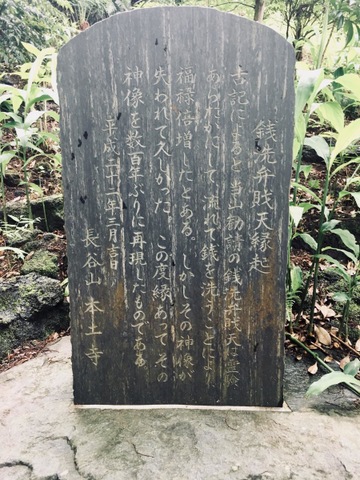 銭洗弁戝天縁起
古記によると当山勧請の銭洗弁戝天は霊験
あらたかにして、流れて銭を洗うことにより
福禄倍増したとある。しかしその神像が
失われて久しかった。この度縁あって その
神像を数百年ぶりに再現したものである
平成二十二年三月吉日
長谷山 本土寺